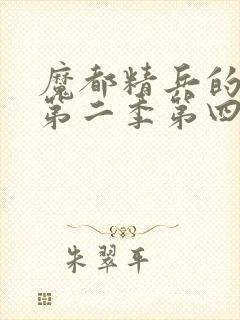 魔都精兵的
第二季第四
朱翠平